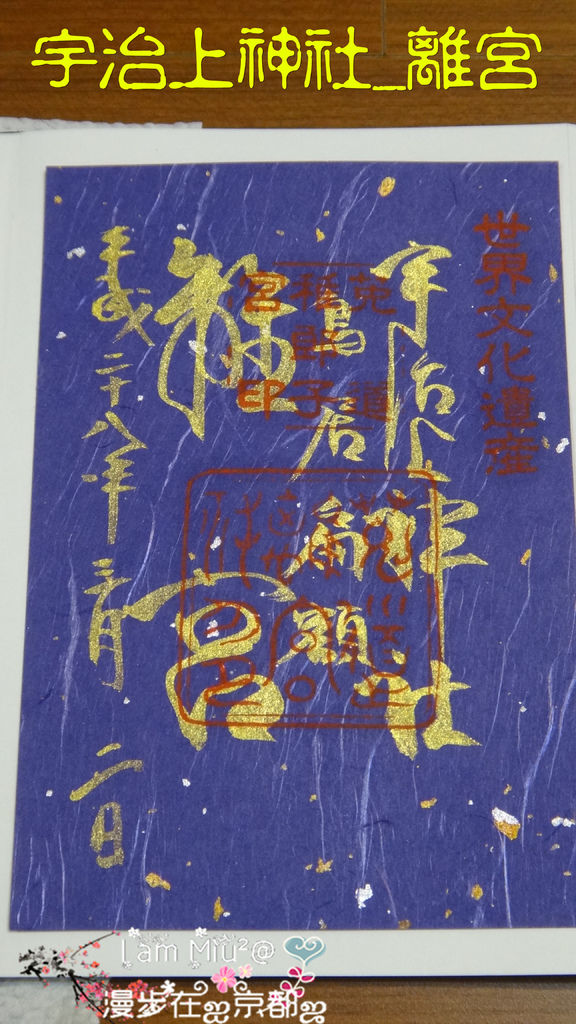 宇治上神社_離宮
世界文化遺産
宇治上神社
鳥居扁額
離宮
平成二十八年
三月
二日
I am Miu²@
漫步在京都